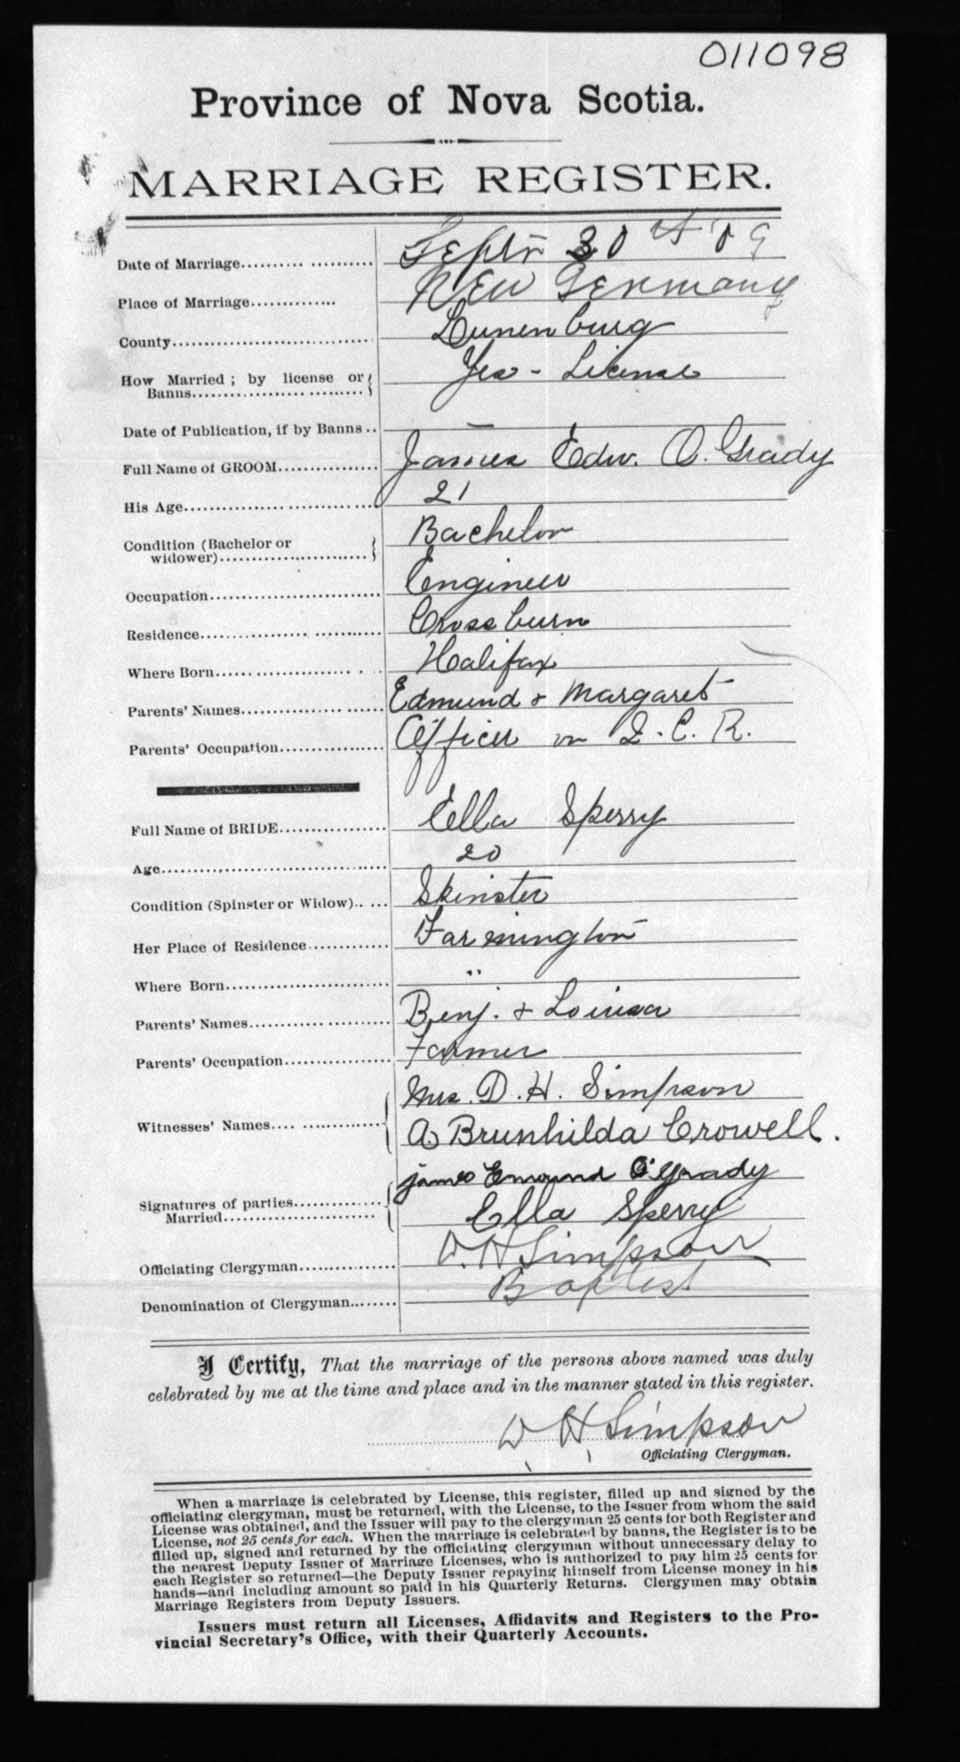 011098
Province of Nova Scotia.
MARRIAGE REGISTER.
Date of Marriage Septr 30th '09
Place of Marriage New Germany
County Lunenburg
How Married; by license or Banns Yes - License
Date of Publication, if by Banns —
Full Name of GROOM James Edw. O. Grady
His Age 21
Condition (Bachelor or widower) Bachelor
Occupation Engineer
Residence Crossburn
Where Born Halifax
Parents' Names Edmund & Margaret
Parents' Occupation Officer on I.C.R.
Full Name of BRIDE Ella Sperry
Age 20
Condition (Spinster or Widow) Spinster
Her Place of Residence Farmington
Where Born "
Parents' Names Benj. & Louisa
Parents' Occupation Farmer
Witnesses' Names Mrs. D. H. Simpson
A Brunhilda Crowell.
Signatures of parties Married James Emound O'Grady
Ella Sperry
Officiating Clergyman D. H Simpson
Denomination of Clergyman Baptist
I Certify, That the marriage of the persons above named was duly
celebrated by me at the time and place and in the manner stated in this register.
D H Simpson
Officiating Clergyman.
When a marriage is celebrated by License, this register, filled up and signed by the
officiating clergyman, must be returned, with the License, to the Issuer from whom the said
License was obtained, and the Issuer will pay to the clergyman 25 cents for both Register and
License, not 25 cents for each. When the marriage is celebrated by banns, the Register is to be
filled up, signed and returned by the officiating clergyman without unnecessary delay to
the nearest Deputy Issuer of Marriage Licenses, who is authorized to pay him 25 cents for
each Register so returned—the Deputy Issuer repaying himself from License money in his
hands—and including amount so paid in his Quarterly Returns. Clergymen may obtain
Marriage Registers from Deputy Issuers.
Issuers must return all Licenses, Affidavits and Registers to the Pro-
vincial Secretary's Office, with their Quarterly Accounts.